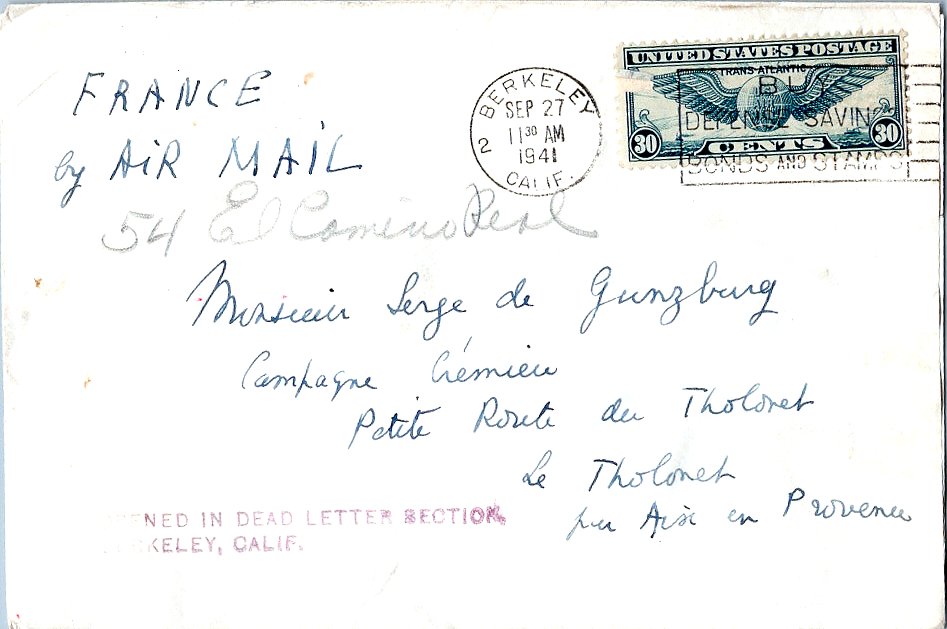 UNITED STATES POSTAGE
TRANS-ATLANTIC
30 CENTS 30
BERKELEY
SEP 27
11 30 AM
1941
2
CALIF.
BUY
DEFENSE SAVINGS
BONDS AND STAMPS
FRANCE
by AIR MAIL
54 El Camino Real
Monsieur Serge de Gunzburg
Campagne Crémieu
Petite Route du Tholonet
Le Tholonet
par Aix en Provence
OPENED IN DEAD LETTER SECTION,
BERKELEY, CALIF.